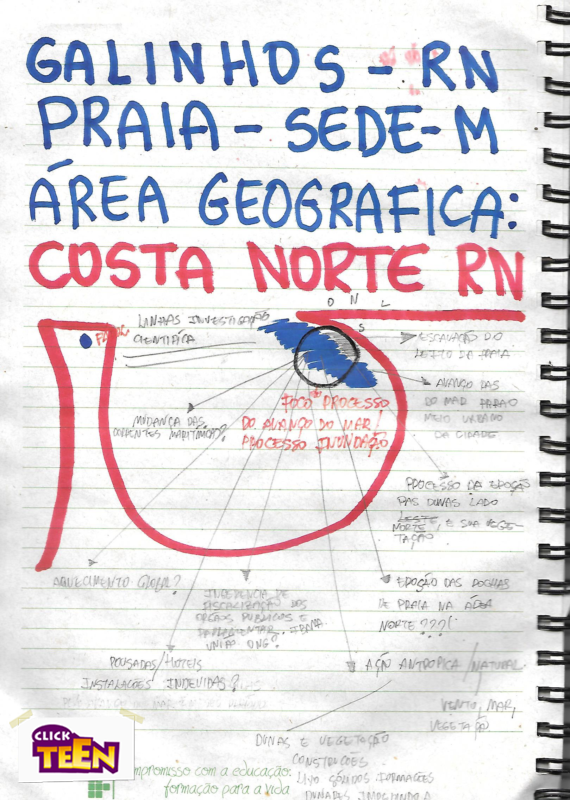 GALINHOS - RN
PRAIA - SEDE-M
ÁREA GEOGRAFICA:
COSTA NORTE RN
O N L
S
LINHAS INVESTIGAÇÃO
CIENTÍFICA
ESCAVAÇÃO DO
LEITO DA PRAIA
AVANÇO DAS
DO MAR PARA O
MEIO URBANO
DA CIDADE
FOCO PROCESSO
DO AVANÇO DO MAR!
PROCESSO INUNDAÇÃO
MUDANÇA DAS
CORRENTES MARITIMAS?
PROCESSO DA EROÇÃO
DAS DUNAS LADO
LESTE
NORTE, E SUA VEGE-
TAÇÃO
AQUECIMENTO GLOBAL?
FISCALIZAÇÃO DOS
ORGÃOS PUBLICOS E
IBAMA
UNIÃO ONG?
EROÇÃO DAS ROCHAS
DE PRAIA NA ÁREA
NORTE???!
POUSADAS/HOTEIS
INSTALAÇÕES INDEVIDAS?
AÇÃO ANTROPICA/NATURAL
VENTO, MAR,
VEGETAÇÃO
DUNAS E VEGETAÇÃO
CONSTRUÇÕES
LIXO SÓLIDOS FORMAÇÕES
CLICK
TEEN
mpromisso com a educação:
formação para a vida